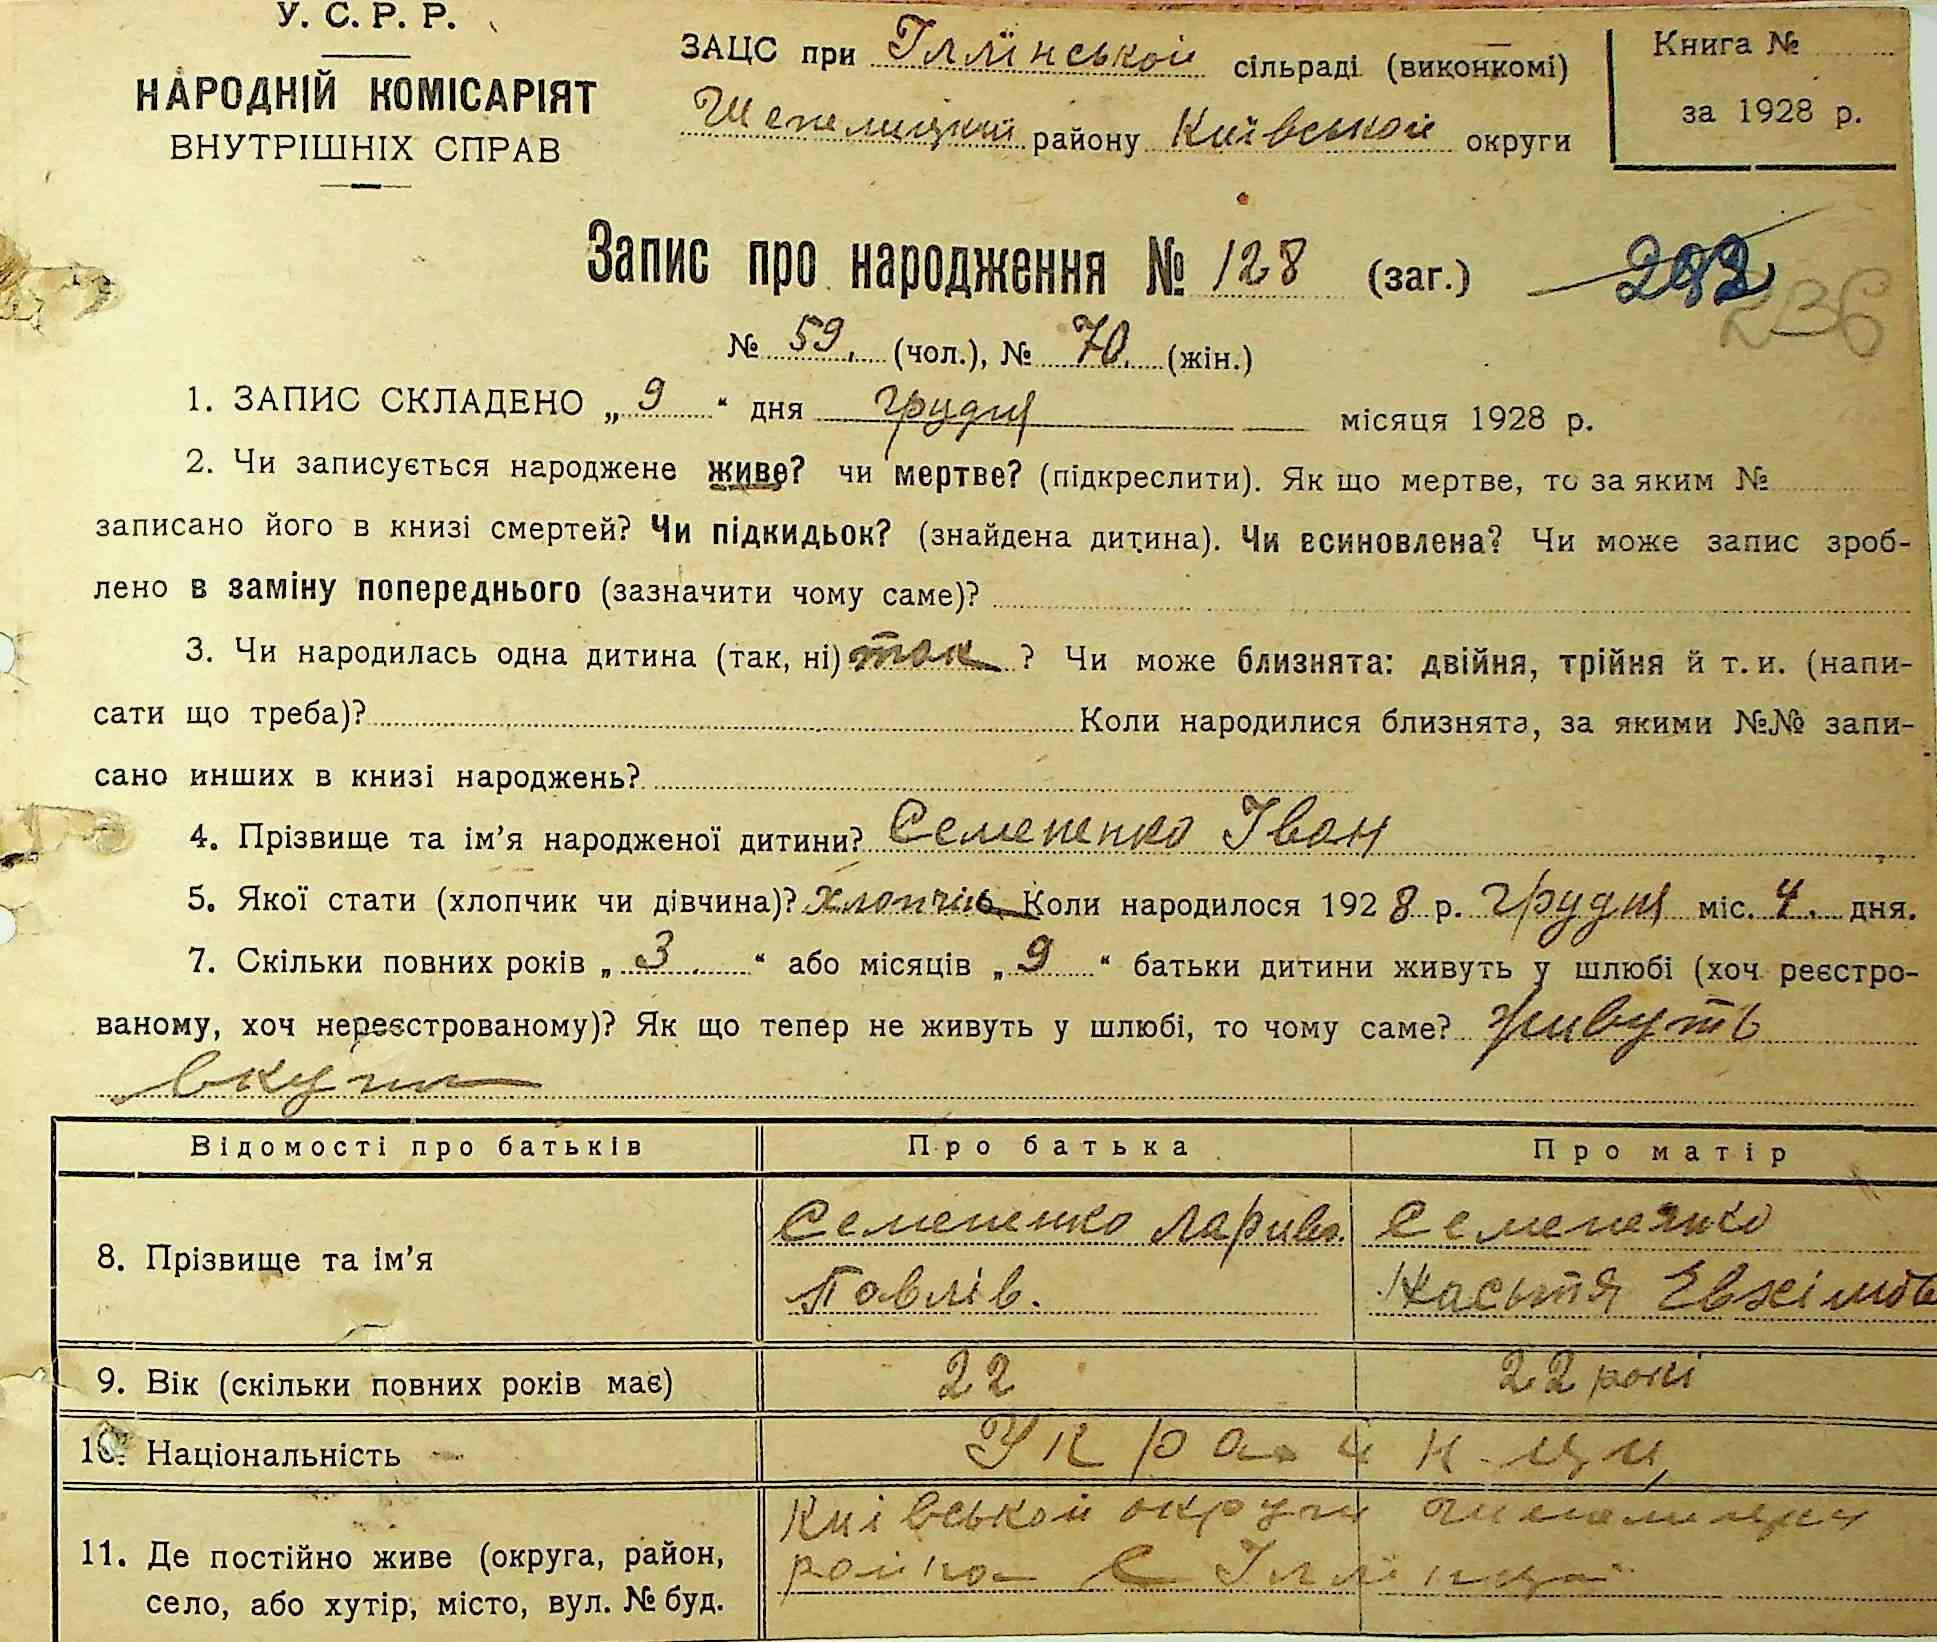 У. С. Р. Р.
НАРОДНІЙ КОМІСАРІЯТ
ВНУТРІШНІХ СПРАВ
ЗАЦС при Іллїнськой сільраді (виконкомі)
Шепелицкий району Київськой округи
Книга №
за 1928 р.
Запис про народження № 128 (заг.)
292
236
№ 59. (чол.), № 70. (жін.)
1. ЗАПИС СКЛАДЕНО „ 9 “ дня грудня місяця 1928 р.
2. Чи записується народжене живе? чи мертве? (підкреслити). Як що мертве, то за яким №
записано його в книзі смертей? Чи підкидьок? (знайдена дитина). Чи всиновлена? Чи може запис зроб-
лено в заміну попереднього (зазначити чому саме)?
3. Чи народилась одна дитина (так, ні) так ? Чи може близнята: двійня, трійня й т. и. (напи-
сати що треба)? Коли народилися близнята, за якими №№ запи-
сано инших в книзі народжень?
4. Прізвище та ім’я народженої дитини? Семененко Іван
5. Якої стати (хлопчик чи дівчина)? хлопчик Коли народилося 1928 р. грудня міс. 4. дня.
7. Скільки повних років „ 3 “ або місяців „ 9 “ батьки дитини живуть у шлюбі (хоч реєстро-
ваному, хоч нереєстрованому)? Як що тепер не живуть у шлюбі, то чому саме? живуть
вкупи
Відомості про батьків Про батька Про матір
8. Прізвище та ім’я
Семененко Ларива. Семененко
Павлів. Настя Евхімов
9. Вік (скільки повних років має) 22 22 рокі
10. Національність Украинци
11. Де постійно живе (округа, район,
село, або хутір, місто, вул. № буд.
Київськой округи
района С Іллїнца